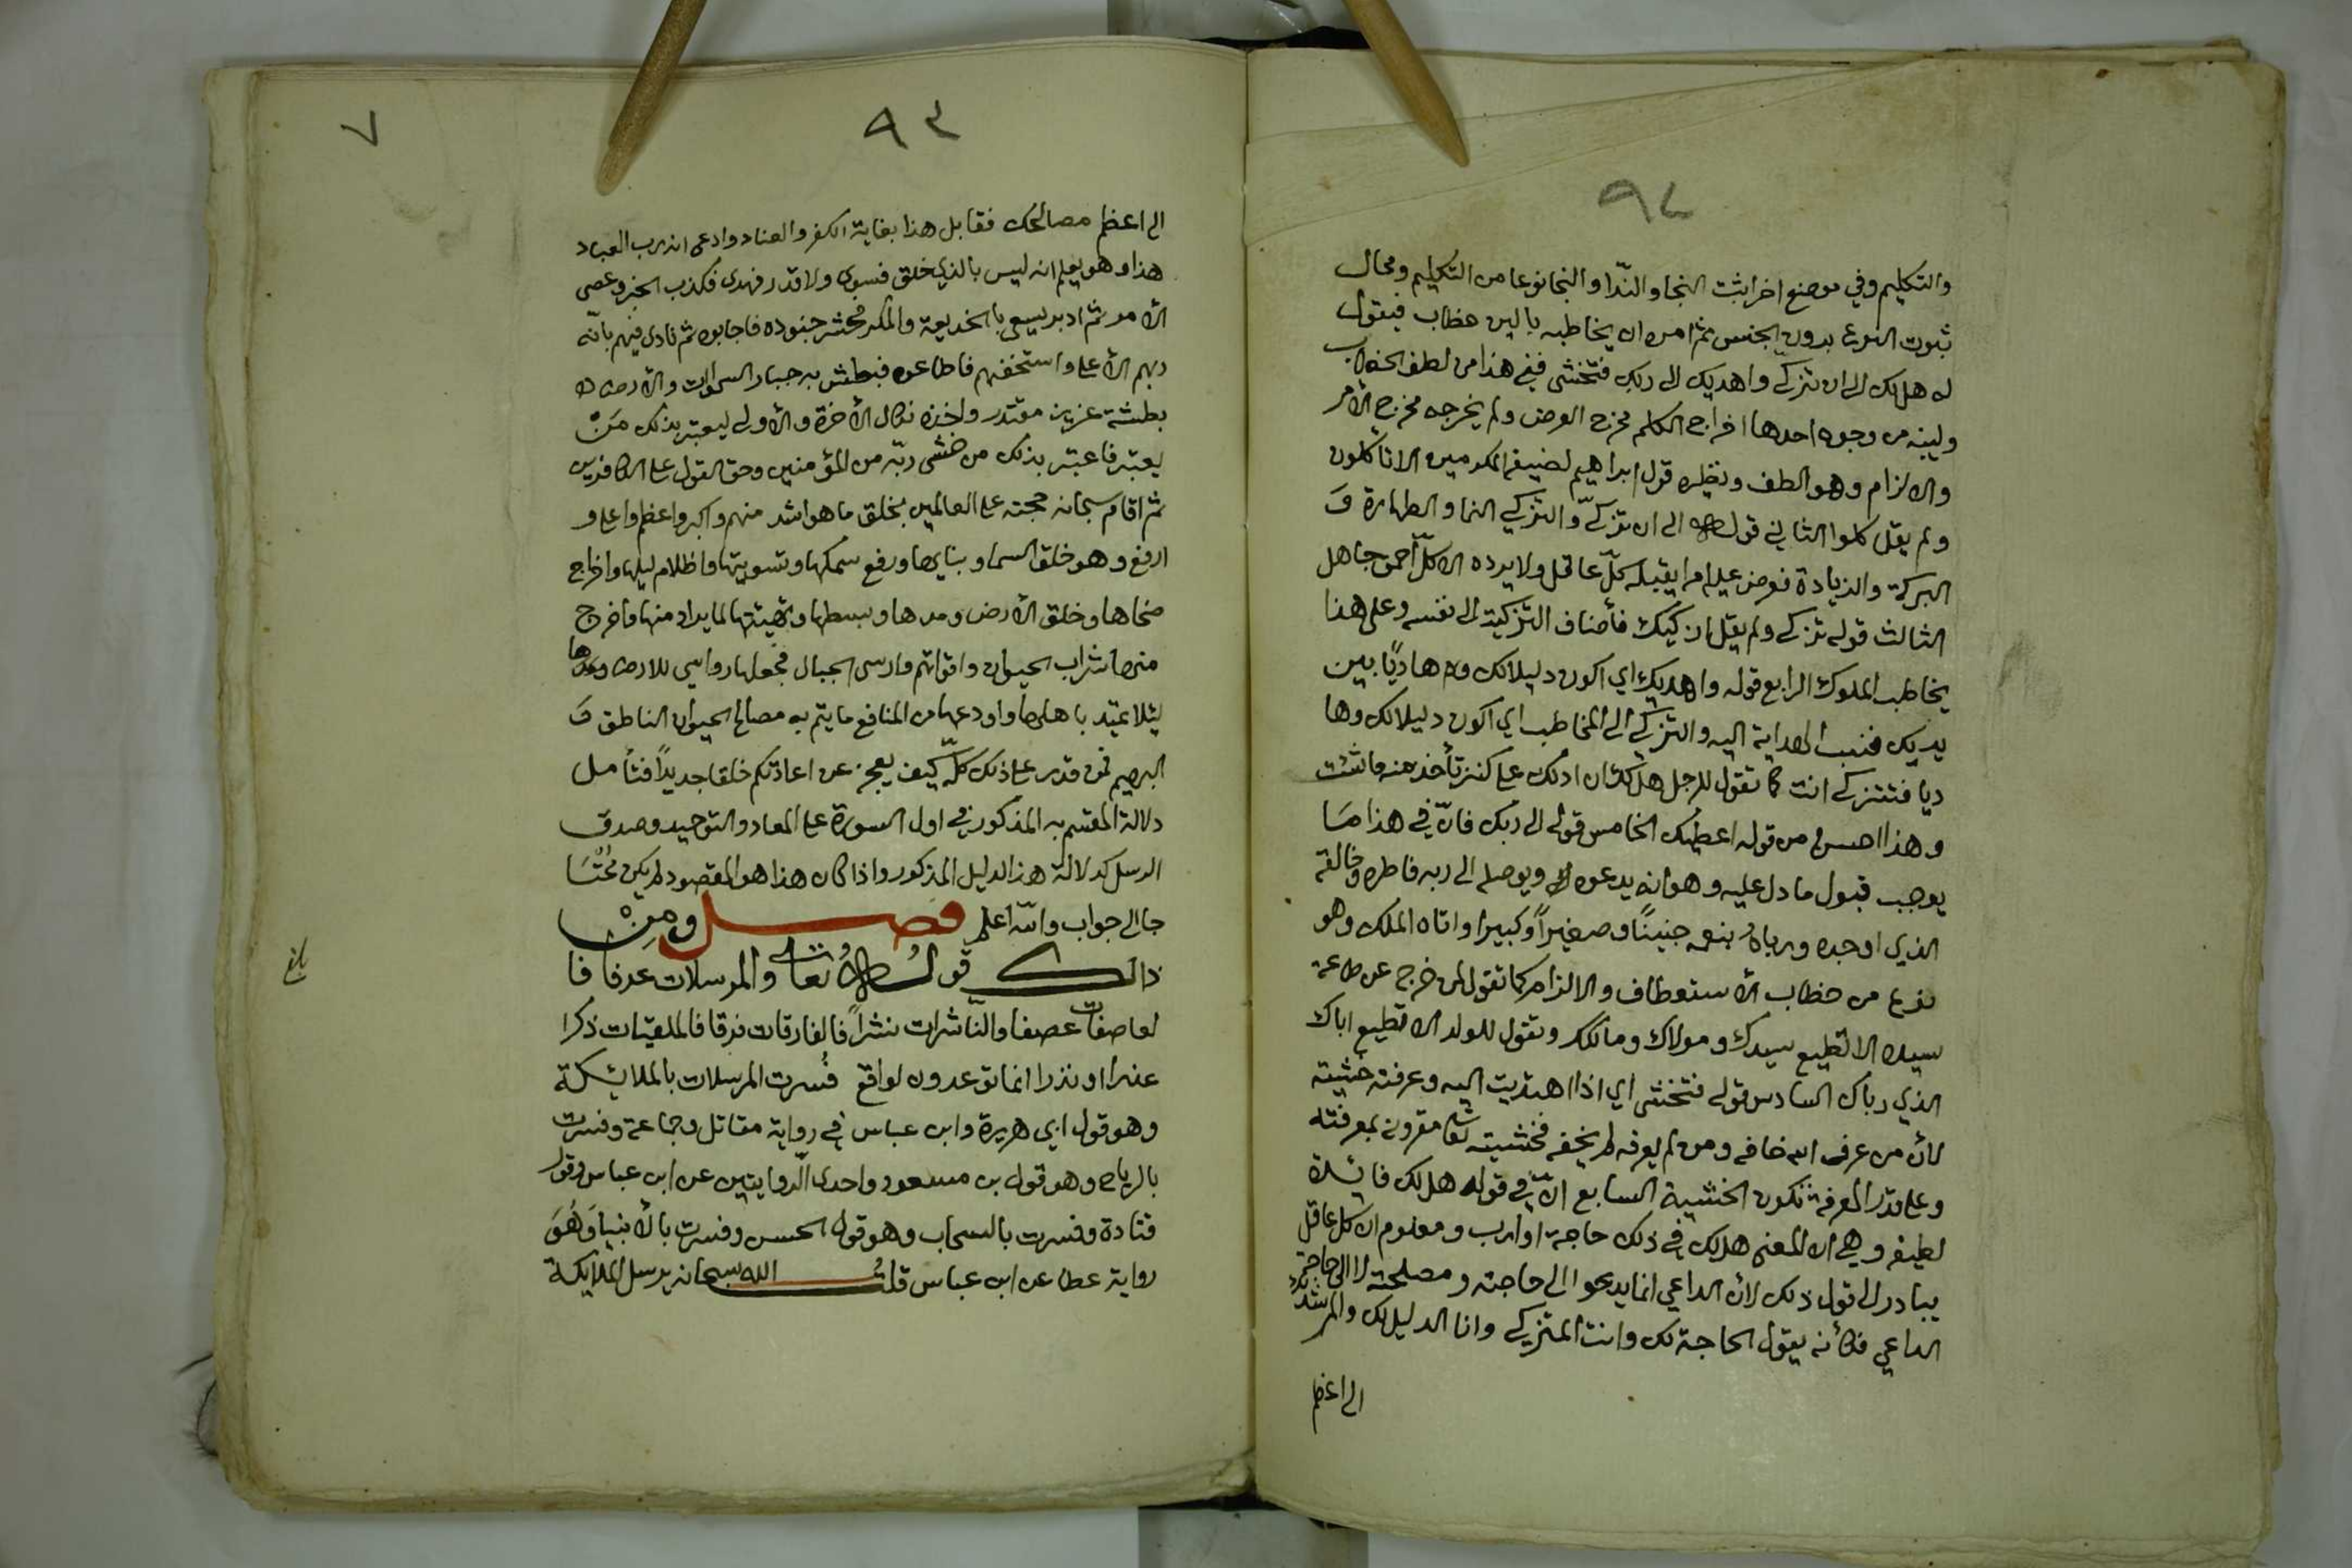 ٩٢
والتكليم وفي موضع اخر اثبت النجا والنّدا والنجا نوعا من التكليم ومحال
ثبوت النوع بدون الجنس ثم امره ان يخاطبه بالين خطاب فيقول
له هل لك الى ان تزكّى واهديك الى ربك فتخشى ففي هذا من لطف الخطاب
ولينه من وجوه احدها اخراج الكلام مخرج العرض ولم يخرجه مخرج الأمر
والالزام وهو الطف ونظيره قول ابراهيم لضيفه المكرمين الا تاكلون
ولم يقل كلوا الثاني قوله الى ان تزكّى والتزكي النما والطهارة وَ
البركة والزيادة فعرض عليه امرا يقبله كلّ عاقل ولا يرده الا كلّ أحمق جاهل
الثالث قوله تزكى ولم يقل ازكيك فأضاف التزكية الى نفسه وعلى هذا
يخاطب الملوك الرابع قوله واهديك اي اكون دليلا لك وهاديًا بين
يديك فنسب الهداية اليه والتزكي الى المخاطب اي اكون دليلا لك وها
ديا فتتزكى انت كما تقول للرجل هل لك ان ادلك على كنز تأخذ منه ما شئت
وهذا احسن من قوله اعطيك الخامس قوله الى ربك فانّ في هذا مَا
يوجب قبول ما دل عليه وهو انه يدعوه ويوصله الى ربه فاطره وخالقه
الذي اوجده ورباه بنعمه جنينًا وصغيراً وكبيرا واتاه الملك وهو
نوع من خطاب الأستعطاف والالزام كما تقول لمن خرج عن طاعة
سيده الا تطيع سيدك ومولاك ومالكك وتقول للولد الا تطيع اباك
الذي رباك السادس قوله فتخشى اي اذا اهتديت اليه وعرفته خشيته
لأن من عرف الله خافه ومن لم يعرفه لم يخفه فخشيته تعالى مقرونة بمعرفته
وعلى قدر المعرفة تكون الخشية السابع انّ في قوله هل لك فائدة
لطيفه وهي ان المعنى هل لك في ذلك حاجة او ارب ومعلوم ان كل عاقل
يبادر الى قول ذلك لأن الداعي انما يدعوا الى حاجته ومصلحته لا الى حاجة
الداعي فكأنه يقول الحاجة لك وانت المتزكي وانا الدليل لك والمرشد لك
الى اعظم
٩٣
٧
الى اعظم مصالحك فقابل هذا بغاية الكفر والعناد وادعى انه رب العباد
هذا وهو يعلم انه ليس بالذي خلق فسوى ولا قدر فهدى فكذب الخبر وعصى
الأمر ثم ادبر يسعى بالخديعة والمكر فحشر جنوده فاجابوه ثم نادى فيهم بأنّه
ربهم الأعلى واستخفهم فاطاعوه فبطش به جبار السموات والأرض
بطشة عزيز مقتدر واخذه نكال الأخرة والأولى ليعتبر بذلك مَنْ
يعتبر فاعتبر بذلك من خشى ربّه من المؤمنين وحق القول على الكافرين
ثم اقام سبحانه حجته على العالمين بخلق ما هو اشد منهم واكبر واعظم واعلى و
ارفع وهو خلق السما وبنايها ورفع سمكها وتسويتها واظلام ليلها واخراج
ضحاها وخلق الأرض ومدها وبسطها وتهيئتها لما يراد منها واخرج
منها شراب الحيوان واقواتهم وارسى الجبال فجعلها رواسي للارض
لئلا تميد باهلها واودعها من المنافع ما يتم به مصالح الحيوان الناطق وَ
البهيم فمن قدر على ذلك كلّه كيف يعجز عن اعادتكم خلقا جديداً فتأمل
دلالة المقسم به المذكور في اول السورة على المعاد والتوحيد وصدق
الرسل كدلالة هذا الدليل المذكور واذا كان هذا هو المقصود لم يكن مُحْتَا
جا الى جواب والله اعلم فصل ومِنْ
ذالك قوله تعالى والمرسلات عرفا فا
لعاصفات عصفا والناشرات نشراً فالفارقات فرقا فالملقيات ذكرا
عذرا او نذرا انما توعدون لواقع فُسرت المرسلات بالملائكة
وهو قول ابي هريرة وابن عباس في رواية مقاتل وجماعة وفسرت
بالرياح وهو قول بن مسعود واحدى الّروايتين عن ابن عباس وقول
قتادة وفسرت بالسحاب وهو قول الحسن وفسرت بالأنبيا وَهُوَ
رواية عطا عن ابن عباس قلت الله سبحانه يرسل الملايكة
بلغ